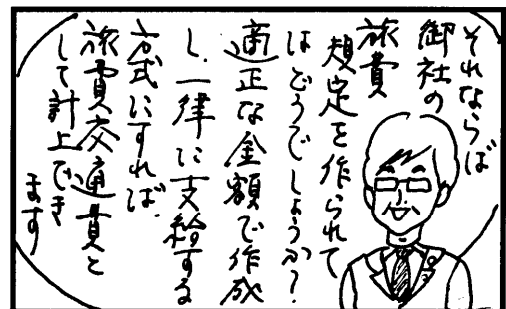 それならば
御社の
旅費
規定を作られて
はどうでしょうか?
適正な金額で作成
し、一律に支給する
方式にすれば、
旅費交通費と
して計上でき
ます